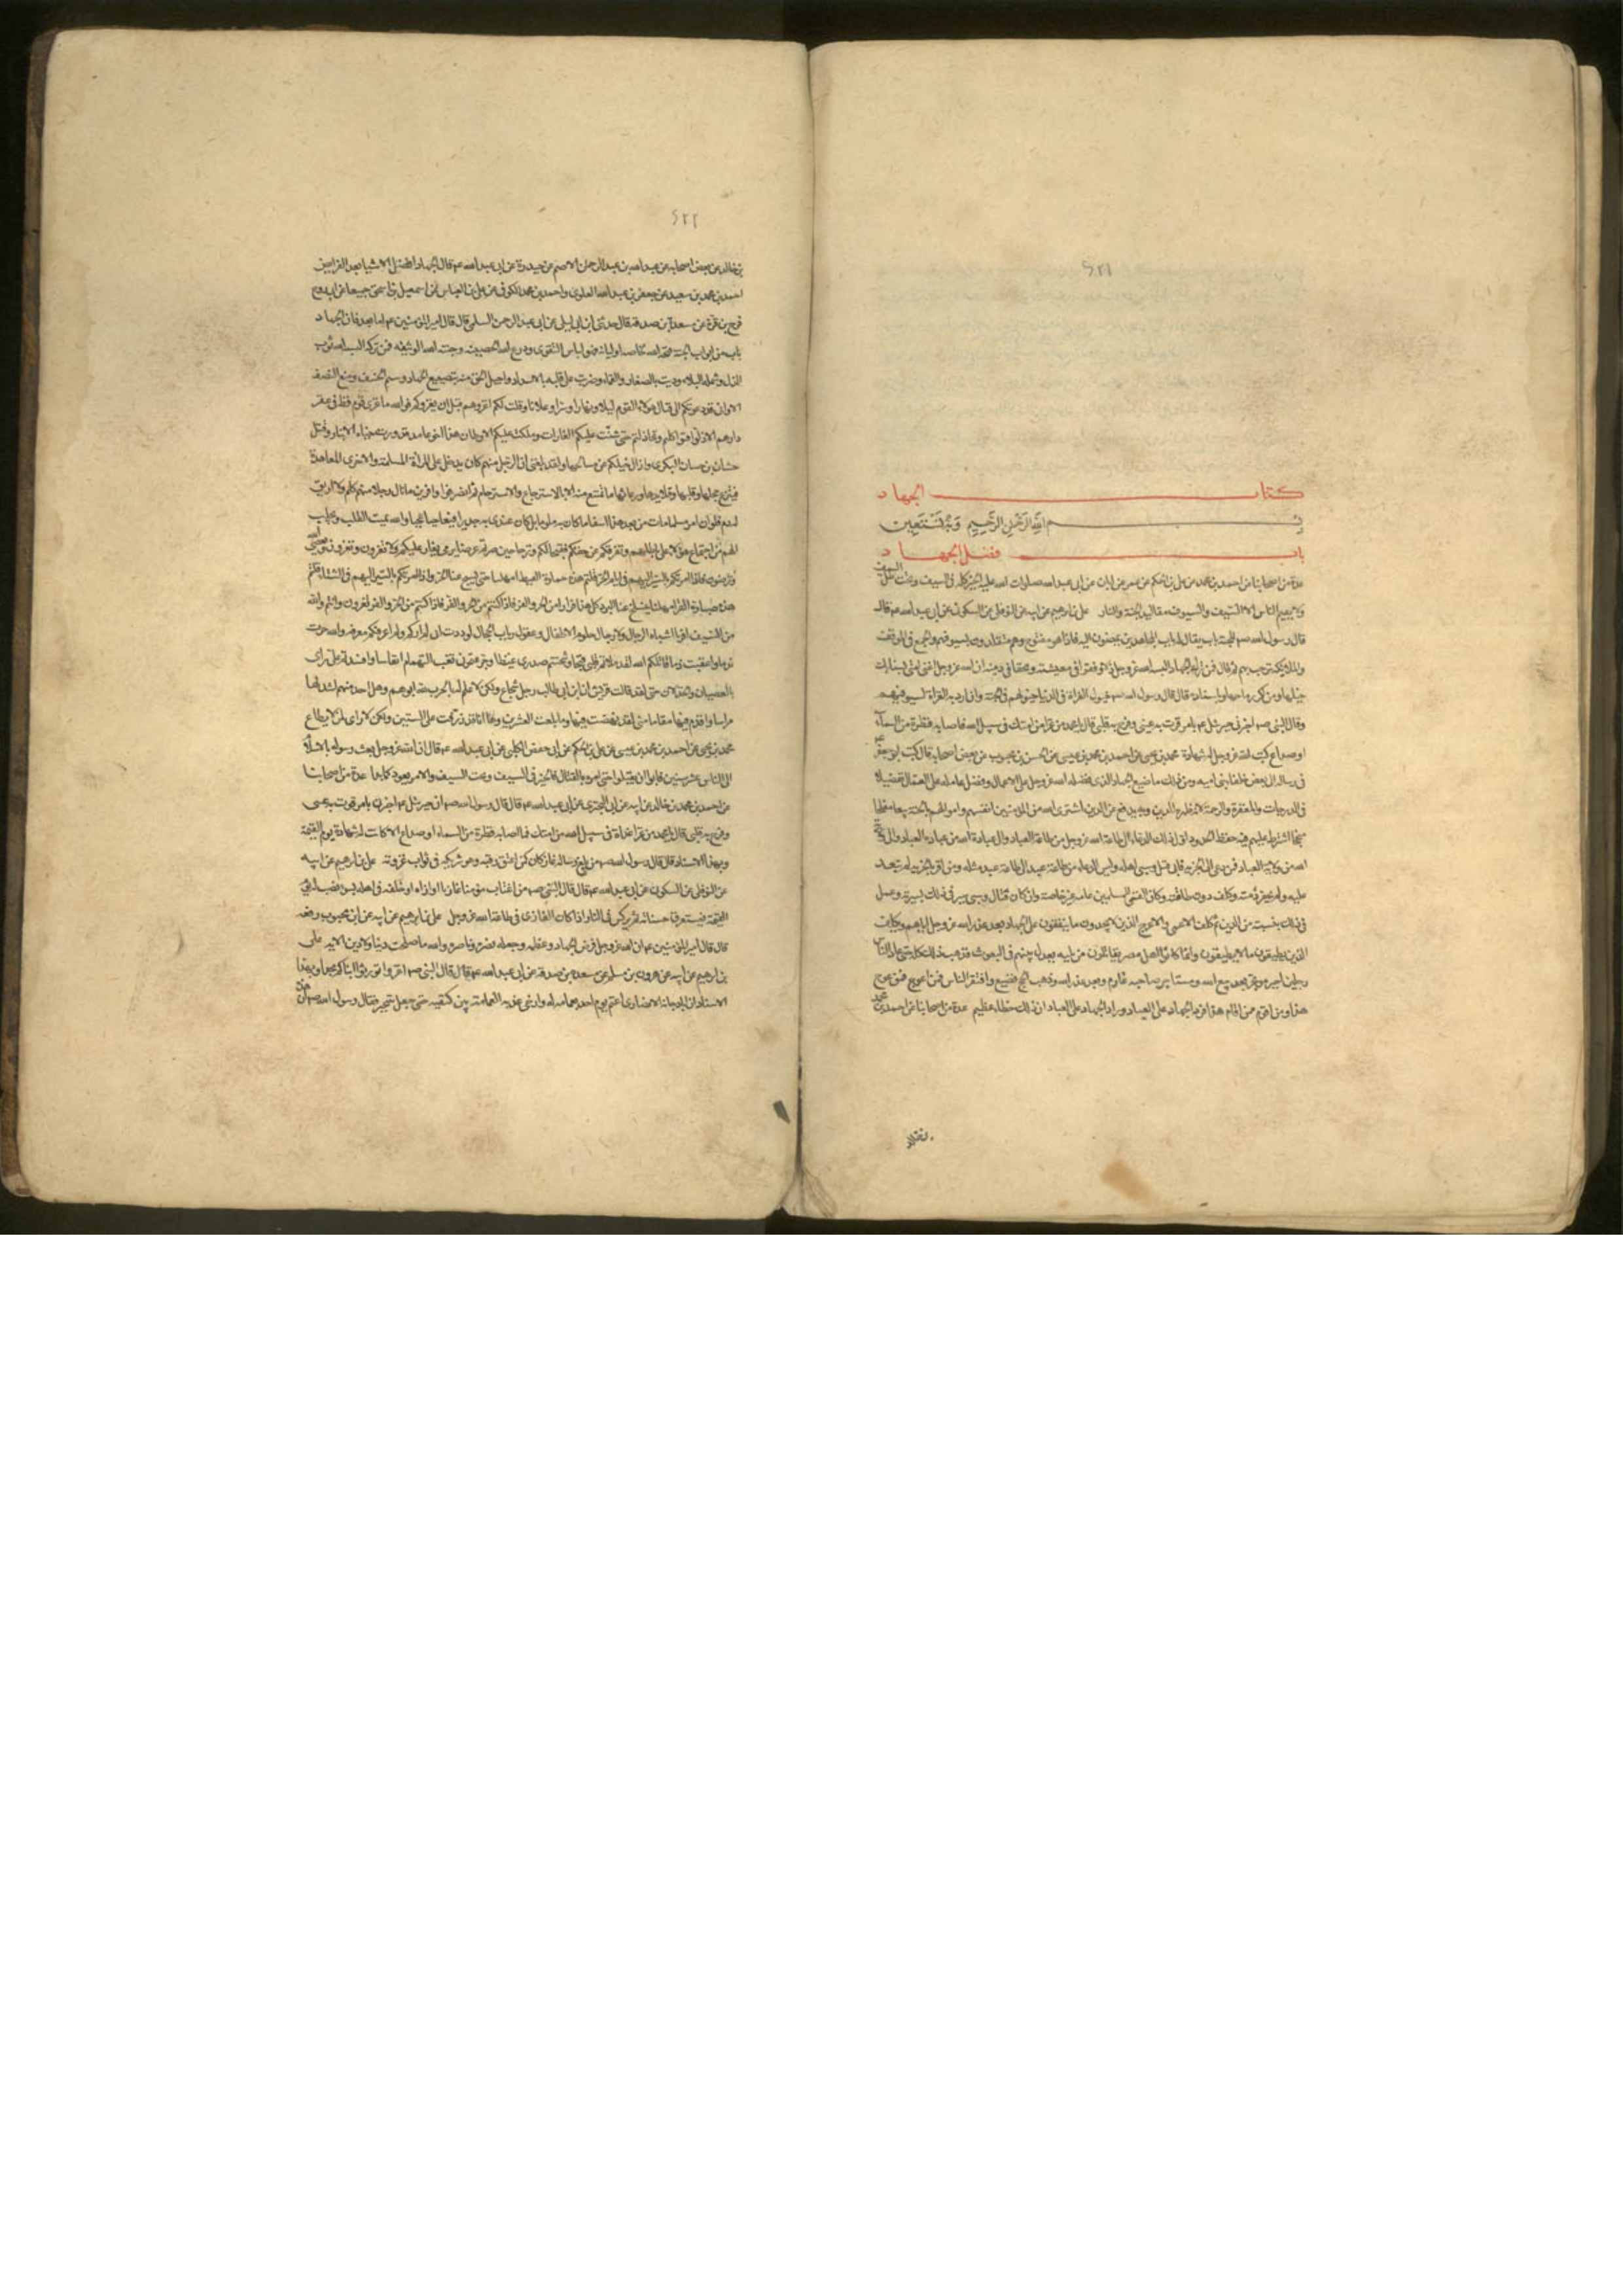 ٤٢١
كتاب الجهاد
بسم الله الرحمن الرحيم وبه نستعين
باب فضل الجهاد
عدة من اصحابنا عن احمد بن محمد عن علي بن الحكم عن عمر بن ابان عن ابي عبد الله صلوات الله عليه الخير كله في السيف وتحت ظل السيف
ولا يقيم الناس الا السيف والسيوف مقاليد الجنة والنار علي بن ابرهيم عن ابيه عن النوفلي عن السكوني عن ابي عبد الله عم قال
قال رسول الله صم للجنة باب يقال له باب المجاهدين يمضون اليه فاذا هو مفتوح وهم متقلدون بسيوفهم والجمع في الموقف
والملائكة ترحب بهم ثم قال فمن ترك الجهاد البسه الله عز وجل ذلا وفقرا في معيشته ومحقا في دينه ان الله عز وجل اغنى امتي بسنابك
خيلها ومراكز رماحها وباسناده قال قال رسول الله صم خيول الغزاة في الدنيا خيولهم في الجنة وان اردية الغزاة لسيوفهم
وقال النبي صم اخبرني جبرئيل عم بامر قرت به عيني وفرح به قلبي قال يا محمد من غزا من امتك في سبيل الله فاصابه قطرة من السماء
او صداع كتب الله عز وجل له شهادة محمد بن يحيى عن احمد بن محمد بن عيسى عن الحسن بن محبوب عن بعض اصحابه قال كتب ابو جعفر عم
في رسالة الى بعض خلفا بني اميه ومن ذلك ما ضيع الجهاد الذي فضله الله عز وجل على الاعمال وفضل عامله على العمال تفضيلا
في الدرجات والمغفرة والرحمة لانه ظهر به الدين وبه يدفع عن الدين وبه اشترى الله من المؤمنين انفسهم واموالهم بالجنة بيعا مفلحا
منجحا اشترط عليهم فيه حفظ الحدود واول ذلك الدعاء الى طاعة الله عز وجل من طاعة العباد والى عبادة الله من عبادة العباد والى ولاية
الله من ولاية العباد فمن دعي الى الجزيه فابى قتل وسبي اهله وليس الدعاء من طاعة عبد الى طاعة عبد مثله ومن اقر بالجزيه لم يتعد
عليه ولم تخفر ذمته وكلف دون طاقته وكان الفيئ للمسلمين عامه غير خاصة وان كان قتال وسبي سير في ذلك بسيرته وعمل
في ذلك بسنته من الدين ثم كلف الاعمى والاعرج الذين لا يجدون ما ينفقون على الجهاد بعد عذر الله عز وجل اياهم ويكلف
الذين يطيقون ما لا يطيقون وانما كانوا اهل مصر يقاتلون من يليه يعدل بينهم في البعوث فذهب ذلك كله حتى عاد الناس
رجلين اجير موتجر بعد بيع الله ومستاجر صاحبه غارم وبعد عذر الله وذهب الحج فضيع وافتقر الناس فمن اعوج ممن عوج
هذا ومن اقوم ممن اقام هذا فرد الجهاد على العباد وزاد الجهاد على العباد ان ذلك خطاء عظيم عدة من اصحابنا عن احمد بن محمد
٤٢٢
بن خالد عن بعض اصحابه عن عبد الله بن عبد الرحمن الاصم عن حيدرة عن ابي عبد الله عم قال الجهاد افضل الاشيا بعد الفرايض
احمد بن محمد بن سعيد عن جعفر بن عبد الله العلوي واحمد بن محمد الكوفي عن علي بن العباس عن اسمعيل بن اسحق جميعا عن ابي روح
فرج بن قرة عن مسعدة بن صدقة قال حدثني ابن ابي ليلى عن ابي عبد الرحمن السلمي قال قال امير المؤمنين عم اما بعد فان الجهاد
باب من ابواب الجنة فتحه الله لخاصة اوليائه وهو لباس التقوى ودرع الله الحصينه وجنته الوثيقه فمن تركه البسه الله ثوب
الذل وشمله البلاء وديث بالصغار والقماء وضرب على قلبه بالاسداد واديل الحق منه بتضييع الجهاد وسيم الخسف ومنع النصف
الا واني قد دعوتكم الى قتال هؤلاء القوم ليلا ونهارا وسرا وعلانا وقلت لكم اغزوهم قبل ان يغزوكم فوالله ما غزي قوم قط في عقر
دارهم الا ذلوا فتواكلتم وتخاذلتم حتى شنت عليكم الغارات وملكت عليكم الاوطان هذا اخو غامد قد وردت خيله الانبار وقتل
حسان بن حسان البكري وازال خيلكم عن مسالحها ولقد بلغني ان الرجل منهم كان يدخل على المراة المسلمة والاخرى المعاهدة
فينزع حجلها وقلبها وقلايدها ورعاثها ما تمتنع منه الا بالاسترجاع والاسترحام ثم انصرفوا وافرين ما نال رجلا منهم كلم ولا اريق
له دم فلو ان امرء مسلما مات من بعد هذا اسفا ما كان به ملوما بل كان عندي به جديرا فيا عجبا عجبا والله يميت القلب ويجلب
الهم من اجتماع هؤلاء على باطلهم وتفرقكم عن حقكم فقبحا لكم وترحا حين صرتم غرضا يرمى يغار عليكم ولا تغيرون وتغزون ولا تغزون ويعصى
الله وترضون فاذا امرتكم بالسير اليهم في ايام الحر قلتم هذه حمارة القيظ امهلنا حتى يسبخ عنا الحر واذا امرتكم بالسير اليهم في الشتاء قلتم
هذه صبارة القر امهلنا ينسلخ عنا البرد كل هذا فرارا من الحر والقر فاذا كنتم من الحر والقر تفرون فانتم والله
من السيف افر يا اشباه الرجال ولا رجال حلوم الاطفال وعقول ربات الحجال لوددت اني لم اركم ولم اعرفكم معرفة والله جرت
ندما واعقبت ذما قاتلكم الله لقد ملاتم قلبي قيحا وشحنتم صدري غيظا وجرعتموني نغب التهمام انفاسا وافسدتم علي رايي
بالعصيان والخذلان حتى لقد قالت قريش ان ابن ابي طالب رجل شجاع ولكن لا علم له بالحرب لله ابوهم وهل احد منهم اشد لها
مراسا واقدم فيها مقاما مني لقد نهضت فيها وما بلغت العشرين وها انا قد ذرفت على الستين ولكن لا راي لمن لا يطاع
محمد بن يحيى عن احمد بن محمد بن عيسى عن علي بن الحكم عن ابي حفص الكلبي عن ابي عبد الله عم قال ان الله عز وجل بعث رسوله بالاسلام
الى الناس عشر سنين فابوا ان يقبلوا حتى امره بالقتال فالخير في السيف وتحت السيف والامر يعود كما بدا عدة من اصحابنا
عن احمد بن محمد بن خالد عن ابيه عن ابي البختري عن ابي عبد الله عم قال قال رسول الله صم ان جبرئيل عم اخبرني بامر قرت به عيني
وفرح به قلبي قال يا محمد من غزا غزاة في سبيل الله من امتك فما اصابه قطرة من السماء او صداع الا كانت له شهادة يوم القيمة
وبهذا الاسناد قال قال رسول الله صم من بلغ رسالة غاز كان كمن اعتق رقبة وهو شريكه في ثواب غزوته علي بن ابرهيم عن ابيه
عن النوفلي عن السكوني عن ابي عبد الله عم قال قال النبي صم من اغتاب مؤمنا غازيا او اذاه او خلفه في اهله بسوء نصب له يوم
القيمة فيستغرق حسناته ثم يركس في النار اذا كان الغازي في طاعة الله عز وجل علي بن ابرهيم عن ابيه عن ابن محبوب رفعه
قال قال امير المؤمنين عم ان الله عز وجل فرض الجهاد وعظمه وجعله نصره وناصره والله ما صلحت دنيا ولا دين الا به علي
بن ابرهيم عن ابيه عن هرون بن مسلم عن مسعدة بن صدقة عن ابي عبد الله عم قال قال النبي صم اغزوا تورثوا ابناءكم مجدا وبهذا
الاسناد ان ابا دجانة الانصاري اعتم يوم احد بعمامة له وارخى عذبة العمامة بين كتفيه حتى جعل يتبختر فقال رسول الله صم ان هذه